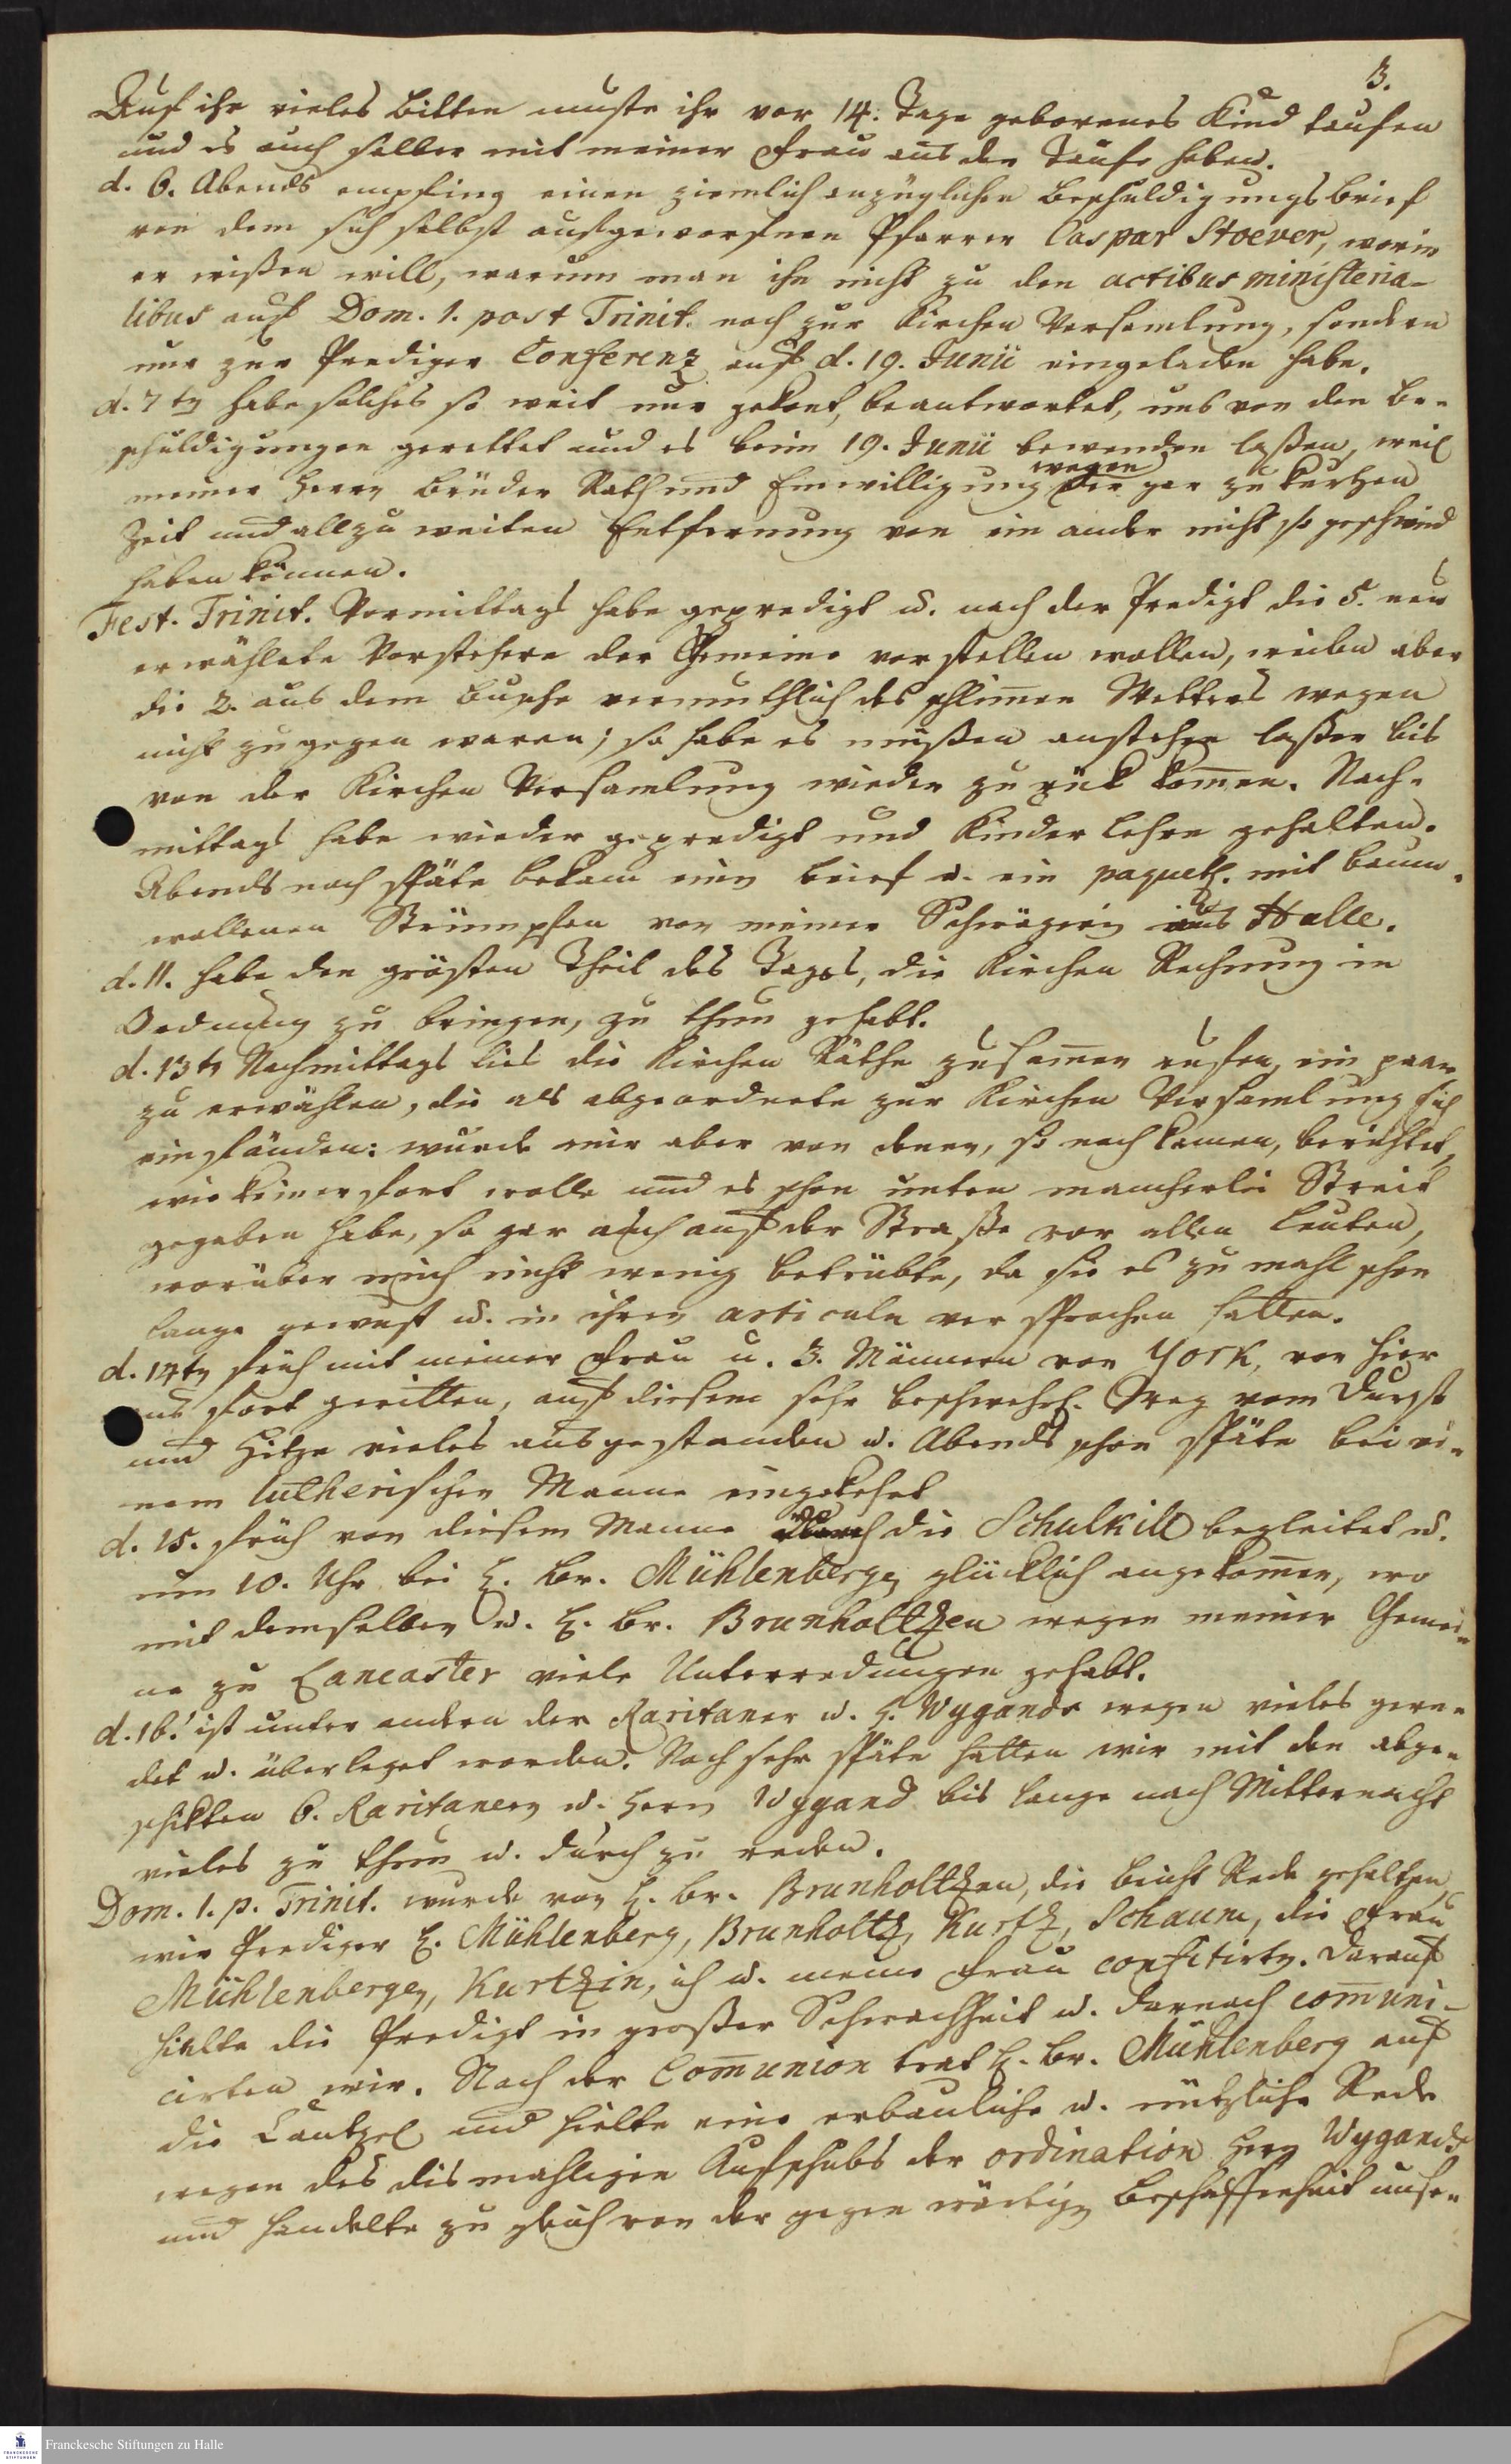 3.
Auf ihr vieles Bitten muste ihr vor 14. Tage geborenes Kind taufen
und es auch selber mit meiner Frau aus der Taufe heben.
d. 6. Abends empfing einen ziemlich anzüglichen Beschuldigungsbrief
von dem sich selbst aufgeworfnen Pfarrer Caspar Stoever, worin
er wißen will, warum man ihn nicht zu den actibus ministeria-
libus auf Dom. 1. post Trinit. noch zur Kirchen Versamlung, sondern
nur zur Prediger Conferenz auf d. 19. Junii eingeladen habe.
d. 7tn habe solches so weit nur gekont, beantwortet, uns von den Be-
schuldigungen gerettet und es beim 19. Junii bewenden laßen, weil
meiner Herrn Brüder Rath und Einwilligung wegen der gar zu kurtzen
Zeit und allzu weiten Entfernung von ein ander nicht so geschwind
haben können.
Fest. Trinit. Vormittags habe gepredigt u. nach der Predigt die 5. neu
erwählete Vorstehere der Gemeine vorstellen wollen, weilen aber
die 2. aus dem Busche vermuthlich des schlim̄en Wetters wegen
nicht zugegen waren; so habe es müßen anstehen laßen bis
von der Kirchen Versamlung wieder zurük kom̄en. Nach-
mittags habe wieder gepredigt und Kinderlehre gehalten.
Abends noch späte bekam einen Brief u. ein paquet. mit baum-
wollenen Strümpfen von meiner Schwägerin aus Halle.
d. 11. habe den grösten Theil des Tages, die Kirchen Rechnung in
Ordnung zu bringen, zu thun gehabt.
d. 13tn Nachmittags lies die Kirchen Räthe zusam̄en rufen, ein paar
zu erwählen, die als abgeordnete zur Kirchen Versamlung sich
einfänden: wurde mir aber von denen, so noch kamen, berichtet,
wie keiner fort wolle und es schon unter mancherlei Streit
gegeben habe, so gar auch auf der Straße vor allen Leuten,
worüber mich nicht wenig betrübte, da sie es zumahl schon
lange gewust u. in ihren articuln versprochen hatten.
d. 14tn früh mit meiner Frau u. 3. Männern von York, von hier
aus fort geritten, auf diesem sehr beschwehrl. Weg vom Durst
und Hitze vieles ausgestanden u. Abends schon späte bei ei-
nem lutherischen Manne eingekehrt
d. 15. früh von diesem Manne über die Schulkill begleitet u.
um 10. Uhr bei H. Br. Mühlenbergen glücklich angekom̄en, wo
mit demselben u. H. Br. Brunholtzen wegen meiner Gemei-
ne zu Lancaster viele Unterredungen gehabt.
d. 16. ist unter andern der Raritaner u. H. Wygands wegen vieles gere-
det u. überleget worden. Noch sehr späte hatten wir mit den abge-
schikten 6. Raritanern u. Herrn Wygand bis lange nach Mitternacht
vieles zu thun u. durch zu reden.
Dom. 1. p. Trinit. wurde von H. Br. Brunholtzen, die Beicht Rede gehalten,
wir Prediger H. Mühlenberg, Brunholtz, Kurtz, Schaum, die Frau
Mühlenbergen, Kurtzin, ich u. meine Frau confitirtn. Darauf
hielte die Predigt in großer Schwachheit u. darnach com̄uni-
cirten wir. Nach der Com̄union trat H. Br. Mühlenberg auf
die Cantzel und hielte eine erbauliche u. nützliche Rede
wegen des dismahligen Aufschubs der ordination Herrn Wygands
und handelte zugleich von der gegenwärtigen Beschaffenheit unsr-
Franckesche Stiftungen zu Halle